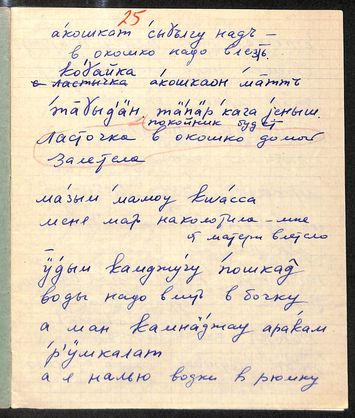 25
а́кошкат с́ы́бы́лгу надъ –
в окошко надо влезть.
ко́ба́йка
ластычка а́кошкаон ма̄ттъ
та́быд̓а́н, та́па́р кага је́ныш.
покойник будет
ласточка в окошко домой
залетела
ма́зым ма́моу ква́сса
меня мать наколотила – мне
от матери влетело
ӱ́дым камджу́гу по́шкад
воды надо влить в бочку
а ман камна́джау ара́кам
рӱ́мкалат
а я налью водки в рюмку